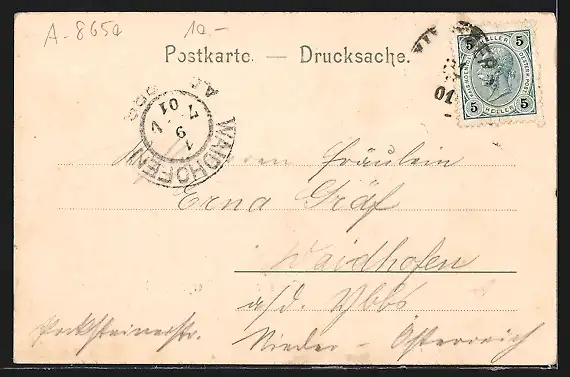 A-865a 10-
Postkarte. — Drucksache.
5 HELLER 5
5 HELLER 5
01
WAIDHOFEN
1 9
7 01
Fräulein
Erna Gräf
Waidhofen
a/d. Ybbs
Nieder - Österreich